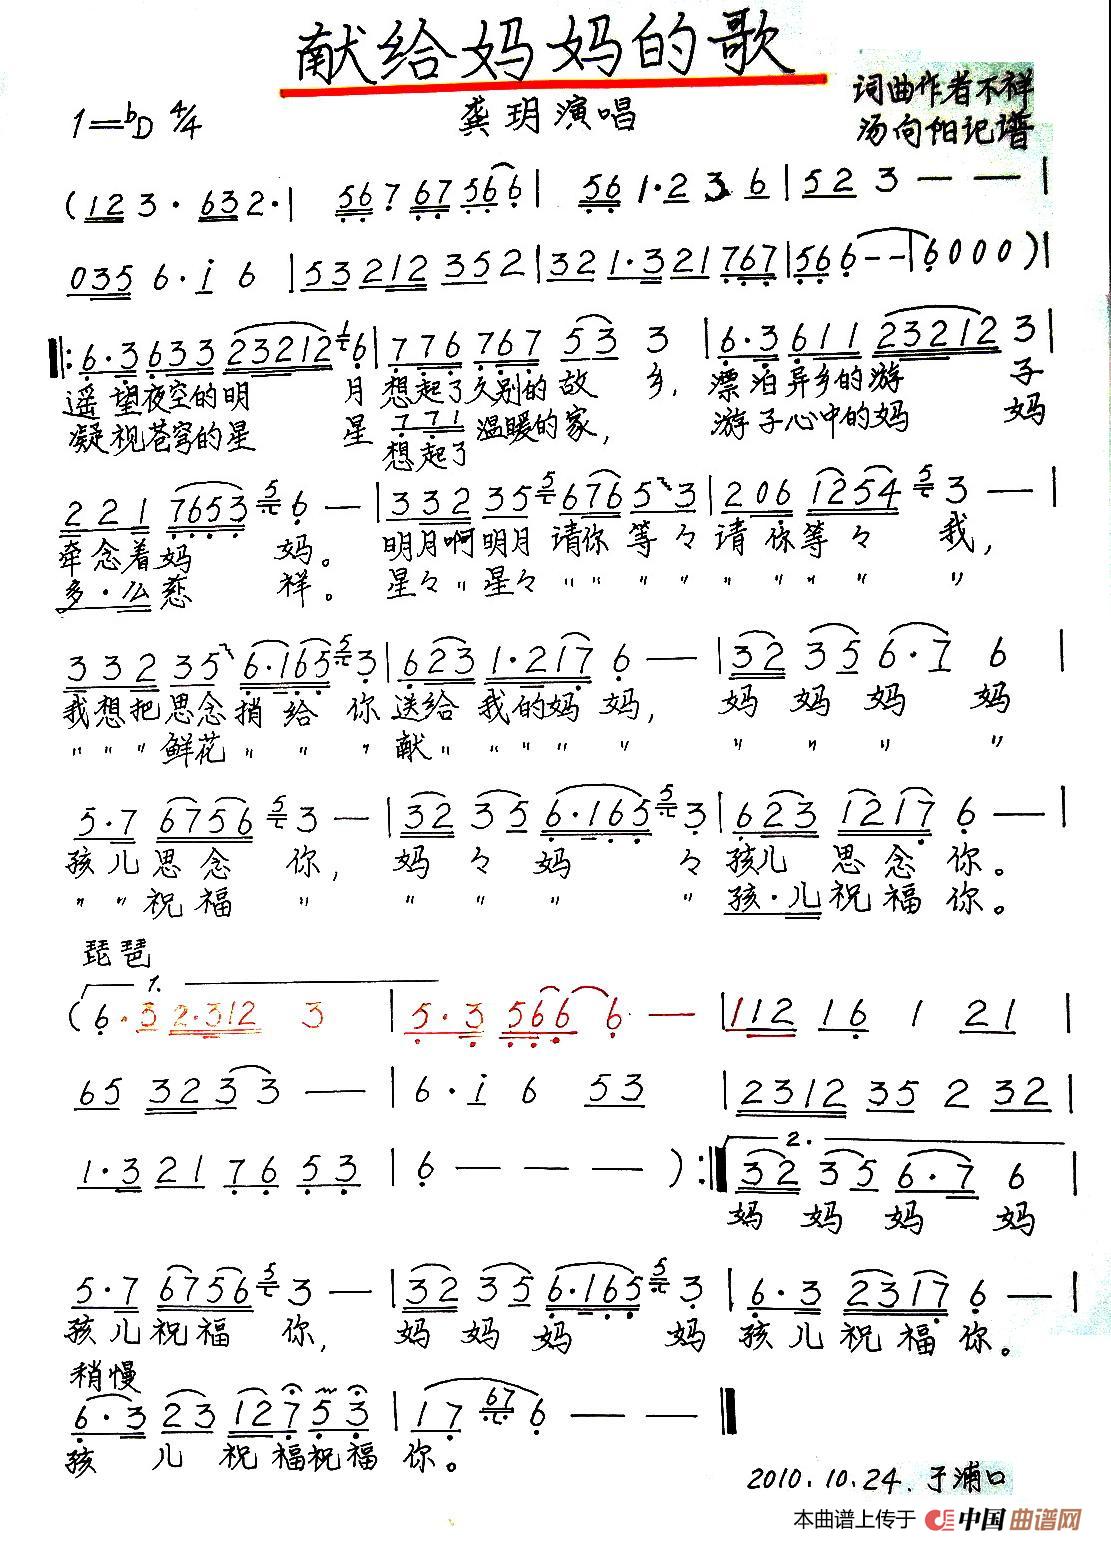 献给妈妈的歌
1=bD 4/4
龚玥演唱
词曲作者不祥
汤向阳记谱
(123·632·| 56767566| 561·236|523——|
0356·i6|53212352|321·321767|566——|6000)|
6·3633232126|776767533|6·3611232123|
遥望夜空的明月想起了久别的故乡,漂泊异乡的游子
凝视苍穹的星星 771 温暖的家,游子心中的妈妈
想起了
221765356—|33235567653|206125453—|
牵念着妈妈。明月啊明月请你等々请你等々我,
多·么慈祥。星々〃星々〃〃〃〃〃〃〃〃〃
332356·16553|6231·2176—|32356·76|
我想把思念捎给你送给我的妈妈,妈妈妈妈
〃〃〃鲜花〃〃〃献〃〃〃〃〃〃〃〃〃
5·7675653—|32356·16553|62312176—|
孩儿思念你,妈々妈々孩儿思念你。
〃〃祝福〃〃〃〃〃孩·儿祝福你。
琵琶
1.
(6·32·3123|5·35666—|11216121|
653233——|6·i653|231235232|
2.
1·3217653|6———):|32356·76|
妈妈妈妈
5·7675653—|32356·16553|6·323176—|
孩儿祝福你,妈妈妈妈孩儿祝福你。
稍慢
6·32312753|17676——
孩儿祝福祝福你。
2010.10.24.于浦口
本曲谱上传于 中国曲谱网